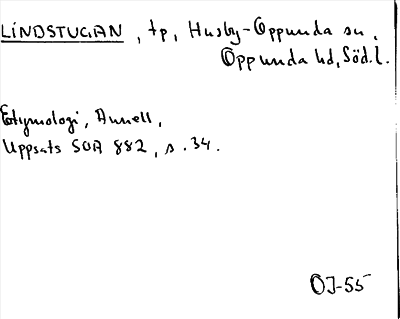 LINDSTUGAN, tp, Husby-Oppunda sn,
Oppunda hd, Södl.
Etymologi, Annell,
Uppsats SOA 882, s. 34.
OJ-55